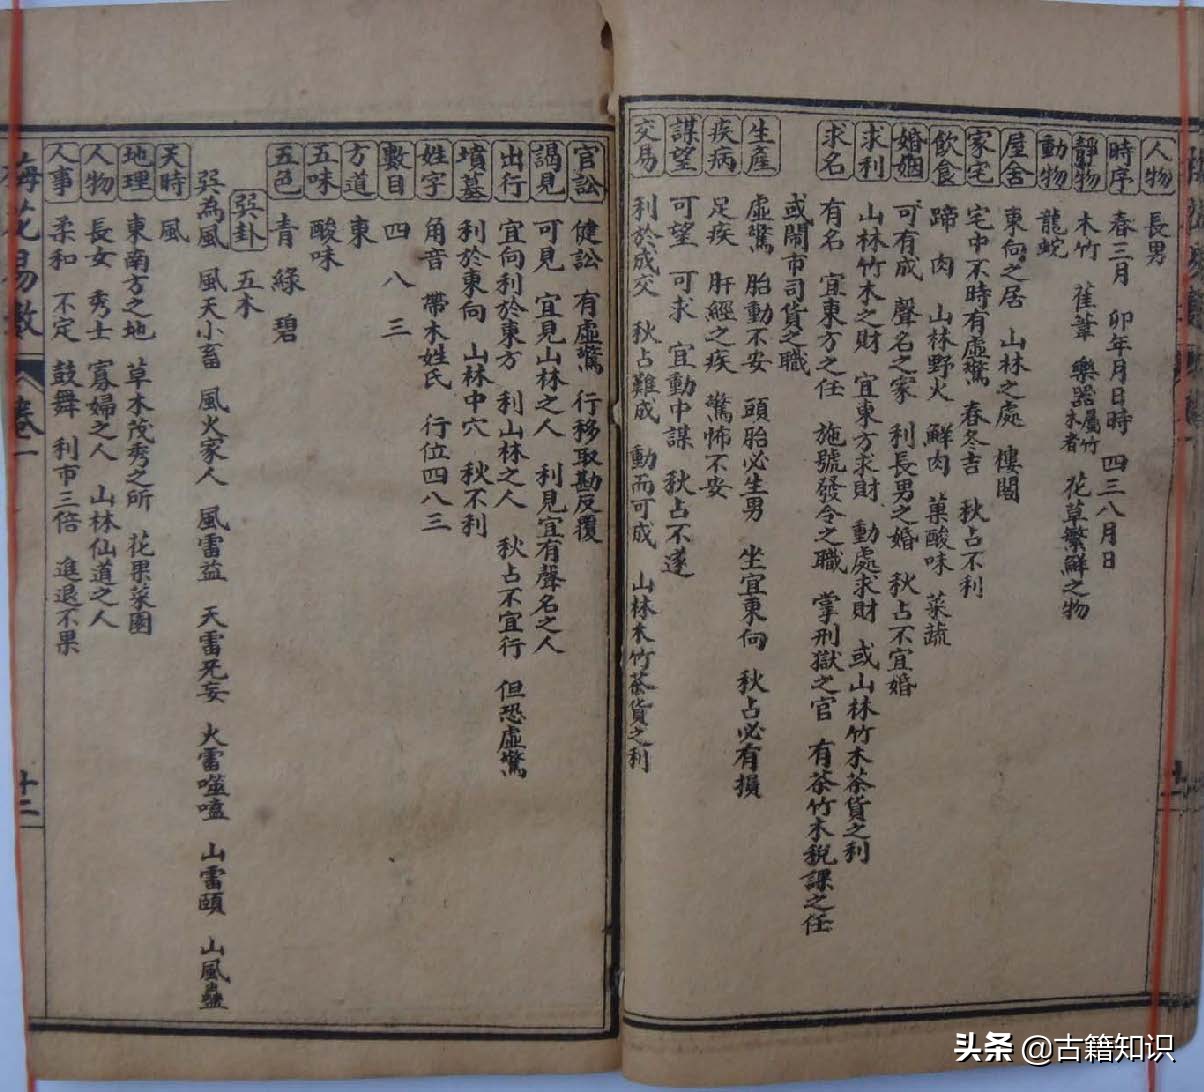 人物 長男
時序 春三月 卯年月日時 四三八月日
靜物 木竹 萑葦 樂器屬竹木者 花草繁鮮之物
動物 龍蛇
屋舍 東向之居 山林之處 樓閣
家宅 宅中不時有虛驚 春冬吉 秋占不利
飲食 蹄 肉 山林野火 鮮肉 菓酸味 菜蔬
婚姻 可有成 聲名之家 利長男之婚 秋占不宜婚
求利 山林竹木之財 宜東方求財 動處求財 或山林竹木茶貨之利
求名 有名 宜東方之任 施號發令之職 掌刑獄之官 有茶竹木稅課之任
或鬧市司貨之職
生產 虛驚 胎動不安 頭胎必生男 坐宜東向 秋占必有損
疾病 足疾 肝經之疾 驚怖不安
謀望 可望 可求 宜動中謀 秋占不遂
交易 利於成交 秋占難成 動而可成 山林木竹茶貨之利
官訟 健訟 有虛驚 行移取勘反覆
謁見 可見 宜見山林之人 利見宜有聲名之人
出行 宜向利於東方 利山林之人 秋占不宜行 但恐虛驚
墳墓 利於東向 山林中穴 秋不利
姓字 角音 帶木姓氏 行位四八三
數目 四 八 三
方道 東
五味 酸味
五色 青 綠 碧
巽卦 五木
巽為風 風天小畜 風火家人 風雷益 天雷旡妄 火雷噬嗑 山雷頤 山風蠱
天時 風
地理 東南方之地 草木茂秀之所 花果菜園
人物 長女 秀士 寡婦之人 山林仙道之人
人事 柔和 不定 鼓舞 利市三倍 進退不果
梅花易數 卷二 十二
头条 @古籍知识